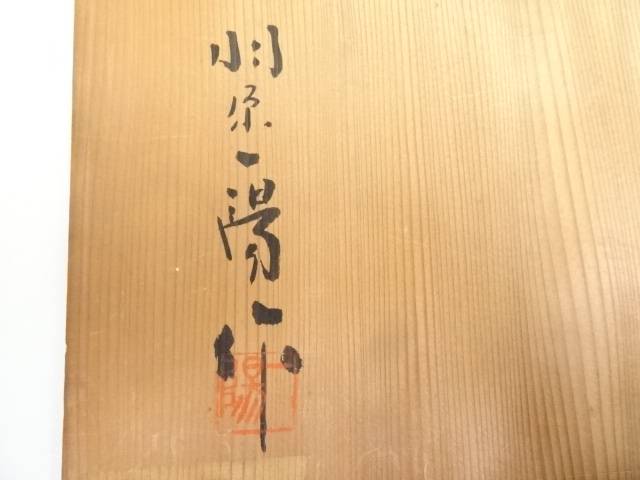 羽原一陽作
一陽